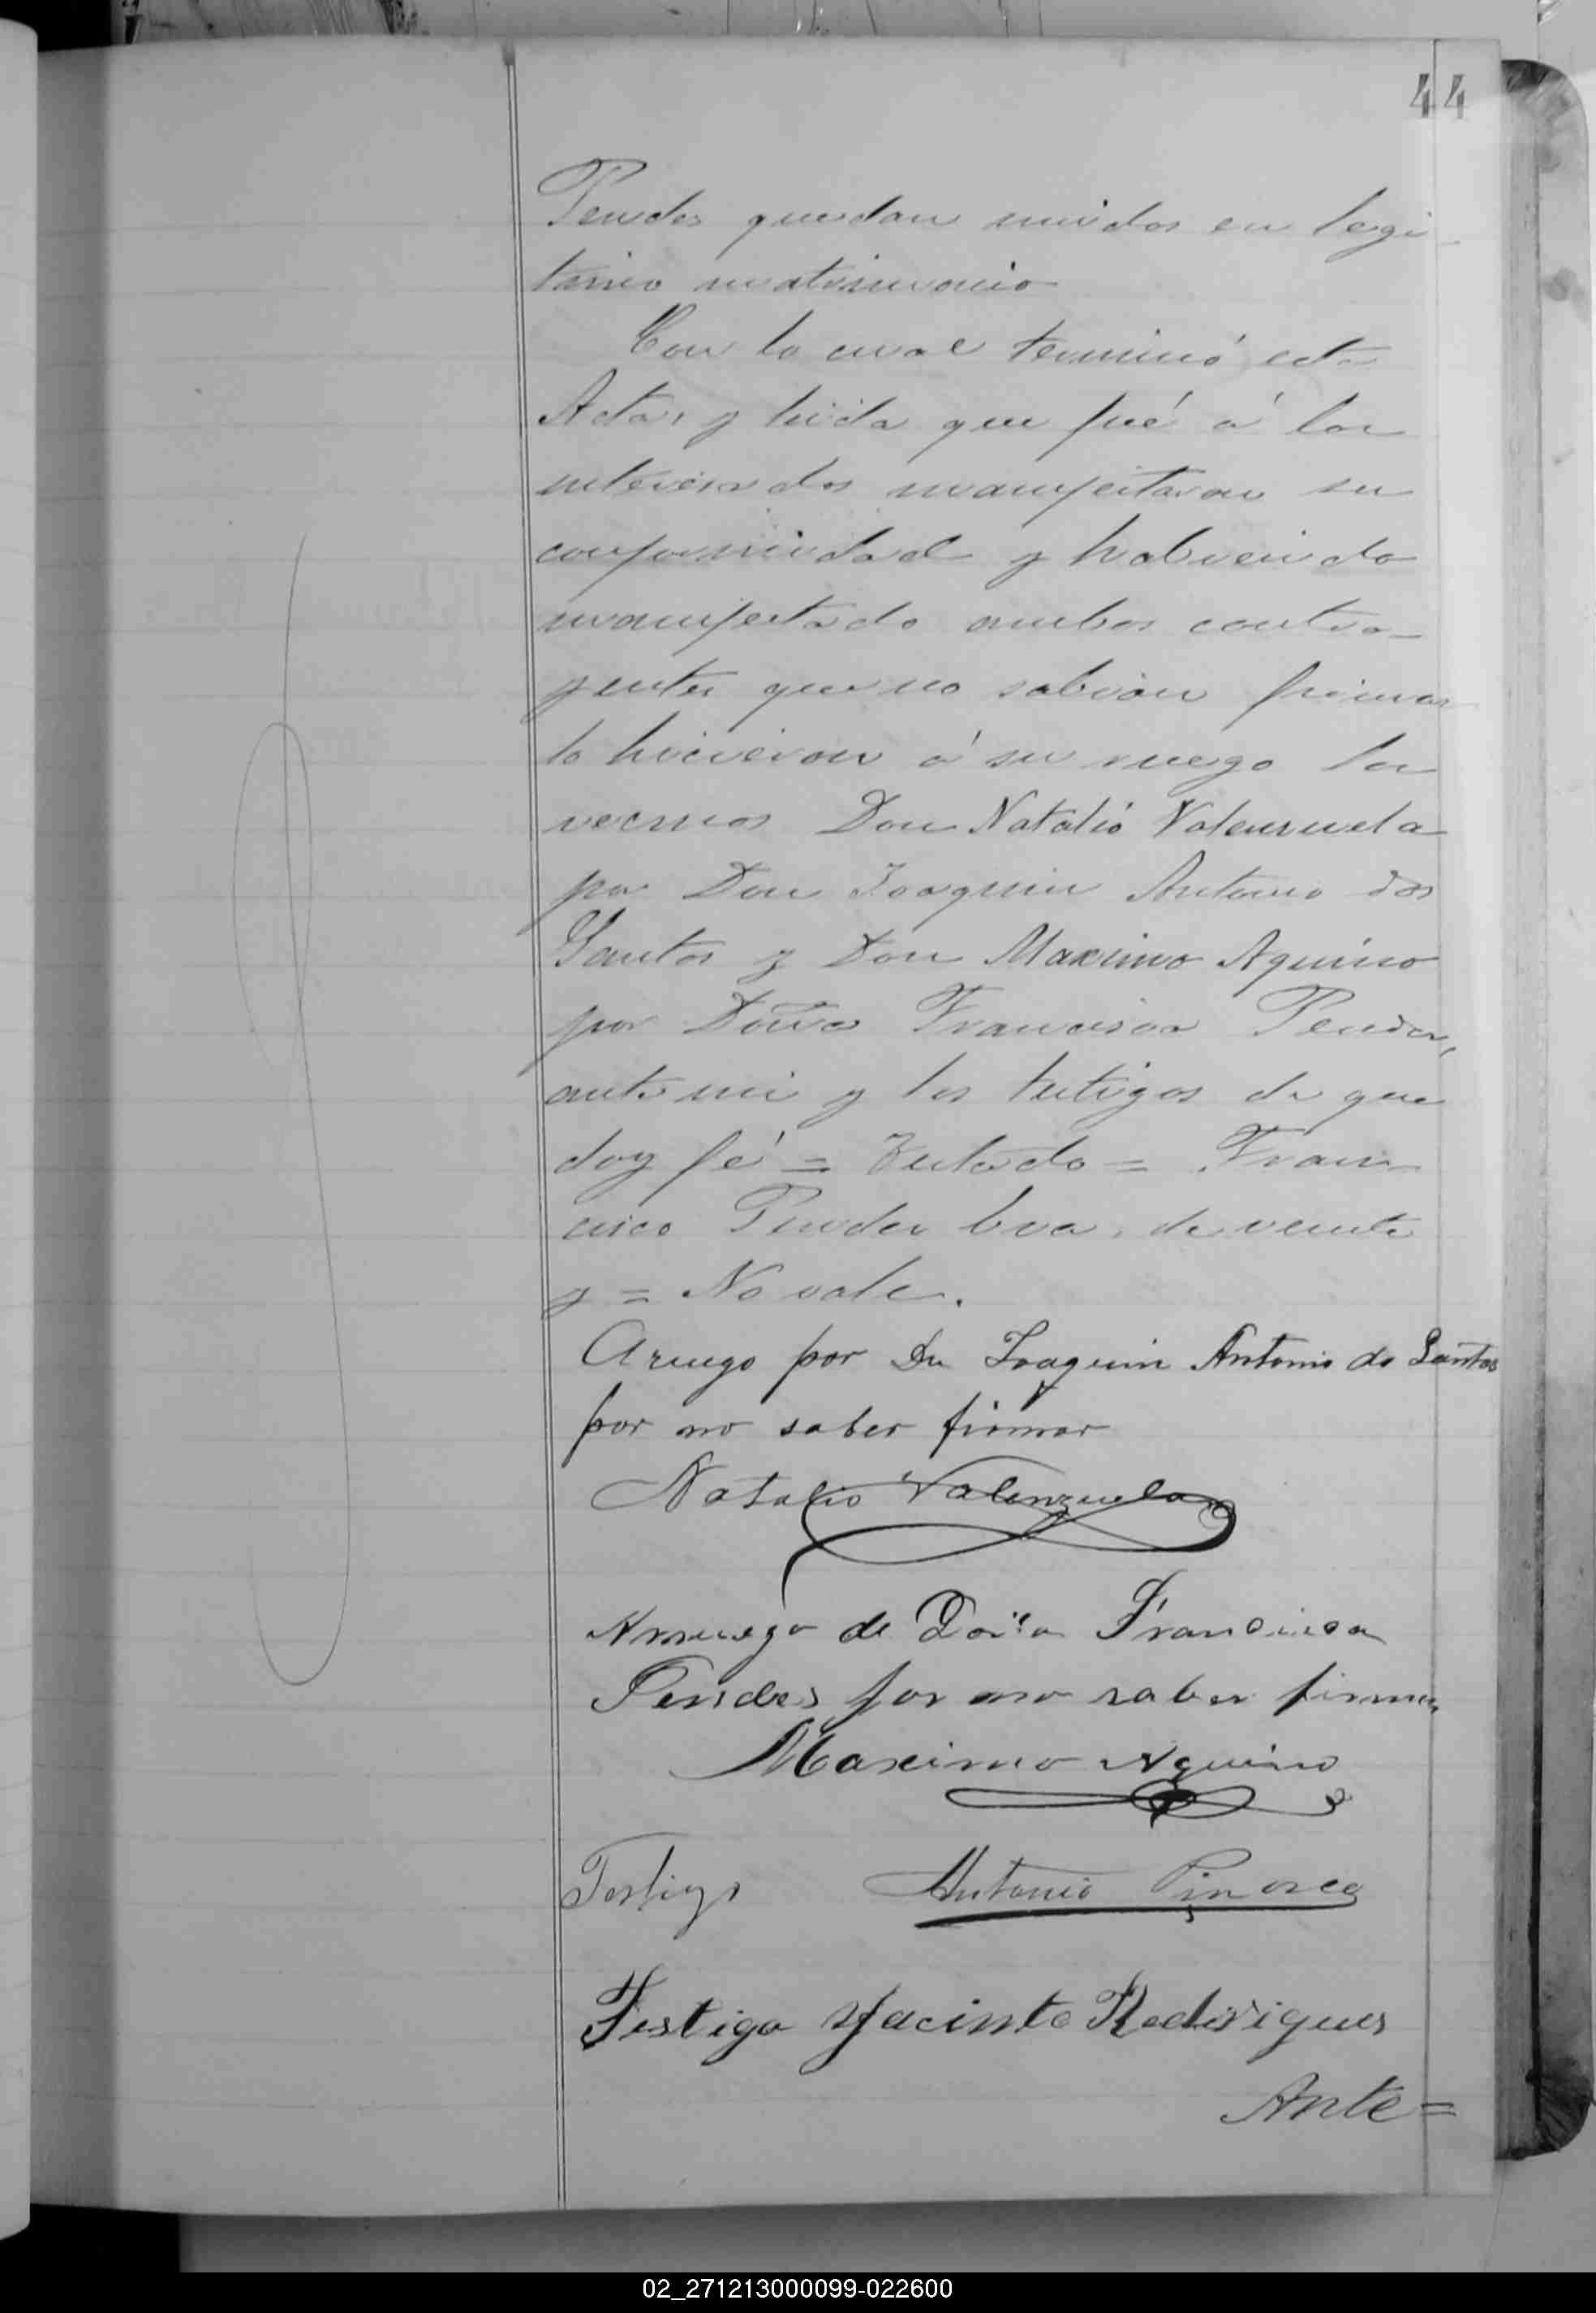 44
Pendes quedan unidos en legi-
timo matrimonio
Con lo cual terminó esta
Acta, y leida que fué á los
interesados manifestaron su
conformidad y habiendo
manifestado ambos contra-
yentes que no sabian firmar
lo hicieron á su ruego los
vecinos Don Natalio Valenzuela
por Don Joaquin Antonio dos
Santos y Don Maximo Aquino
por Doña Francisca Pendes,
ante mi y los testigos de que
doy fé = Testado = Fran
cisco Pendes de veinte
y = No vale.
A ruego por Dn Joaquin Antonio do Santos
por no saber firmar
Natalio Valenzuela
Arruego de Doña Francisca
Pendes por no saber firmar
Maximo Aquino
Testigo Antonio
Testigo Jacinto Rodrigues
Ante=
02_271213000099-022600